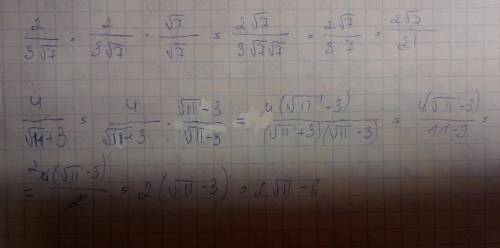 2/(3√7) = 2/(3√7) · √7/√7 = 2√7/(3√7√7) = 2√7/(3·7) = 2√7/21
4/(√11+3) = 4/(√11+3) · (√11-3)/(√11-3) = 4(√11-3)/((√11+3)(√11-3)) = 4(√11-3)/(11-9) =
= 4(√11-3)/2 = 2(√11-3) = 2√11-6